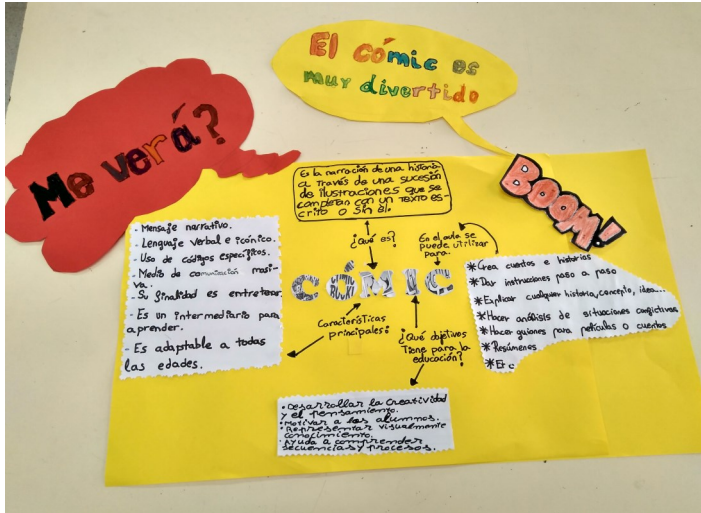 El cómic es
muy divertido
Me verá?
BOOM!
Es la narración de una historia
a través de una sucesión
de ilustraciones que se
completan con un texto es-
crito o sin él.
¿Qué es?
En el aula se
puede utilizar
para.
CÓMIC
Características
principales:
¿Qué objetivos
tiene para la
educación?
- Mensaje narrativo.
- Lenguaje verbal e icónico.
- Uso de códigos específicos.
- Medio de comunicación masi-
va.
- Su finalidad es entretener.
- Es un intermediario para
aprender.
- Es adaptable a todas
las edades.
* Crea cuentos e historias
* Dar instrucciones paso a paso
* Explicar cualquier historia, concepto, idea...
* Hacer análisis de situaciones conflictivas
* Hacer guiones para películas o cuentos
* Resúmenes
* Etc
• Desarrollar la creatividad
y el pensamiento.
• Motivar a los alumnos.
• Representar visualmente
conocimiento.
• Ayuda a comprender
secuencias y procesos.